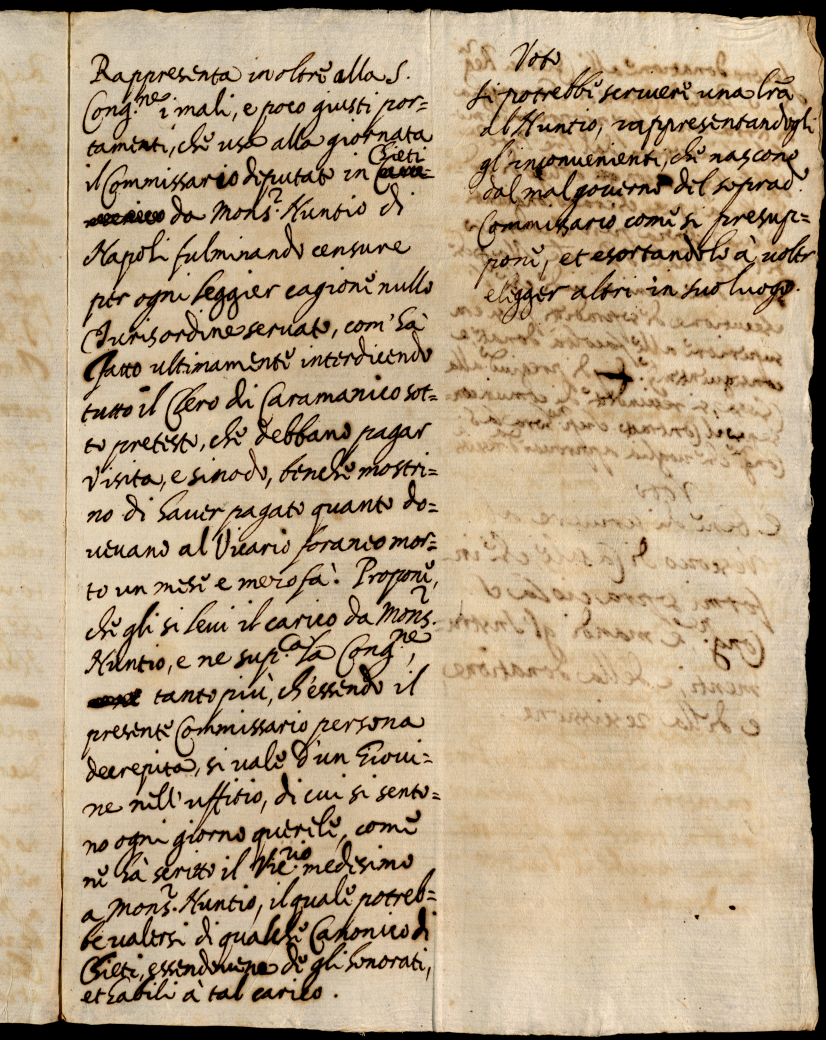 Rappresenta inoltre alla S.
Cong.ne i mali, e poco giusti por=
tamenti, che usa alla giornata
il Commissario deputato in Chieti
da Mons.r Nuntio di
Napoli fulminando censure
per ogni leggier cagione nullo
Iuris ordine servato, com' hà
fatto ultimamente interdicendo
tutto il Clero di Caramanico sot=
to pretesto, che debbano pagar
visita, e sinodo, benche mostri=
no di haver pagato quanto do=
vevano al Vicario foraneo mor=
to un mese e mezo fà. Propone,
che gli si levi il carico da Mons.r
Nuntio, e ne sup.ca la Cong.ne,
tanto più, ch'essendo il
presente Commissario persona
decrepita, si vale d'un Giovi=
ne nell'uffitio, di cui si sento=
no ogni giorno querele, come
ne hà scritto il Vic.rio medesimo
a Mons.r Nuntio, il quale potreb=
be valersi di qualche Canonico di
Chieti, essendovene de gli honorati,
et habili à tal carico.
Voto
Si potrebbe scrivere una lrã
al Nuntio, rappresentandogli
gl'inconvenienti, che nascono
dal mal governo del soprad.o
Commissario come si presup=
pone, et esortandolo à voler
eligger altri in suo luogo.